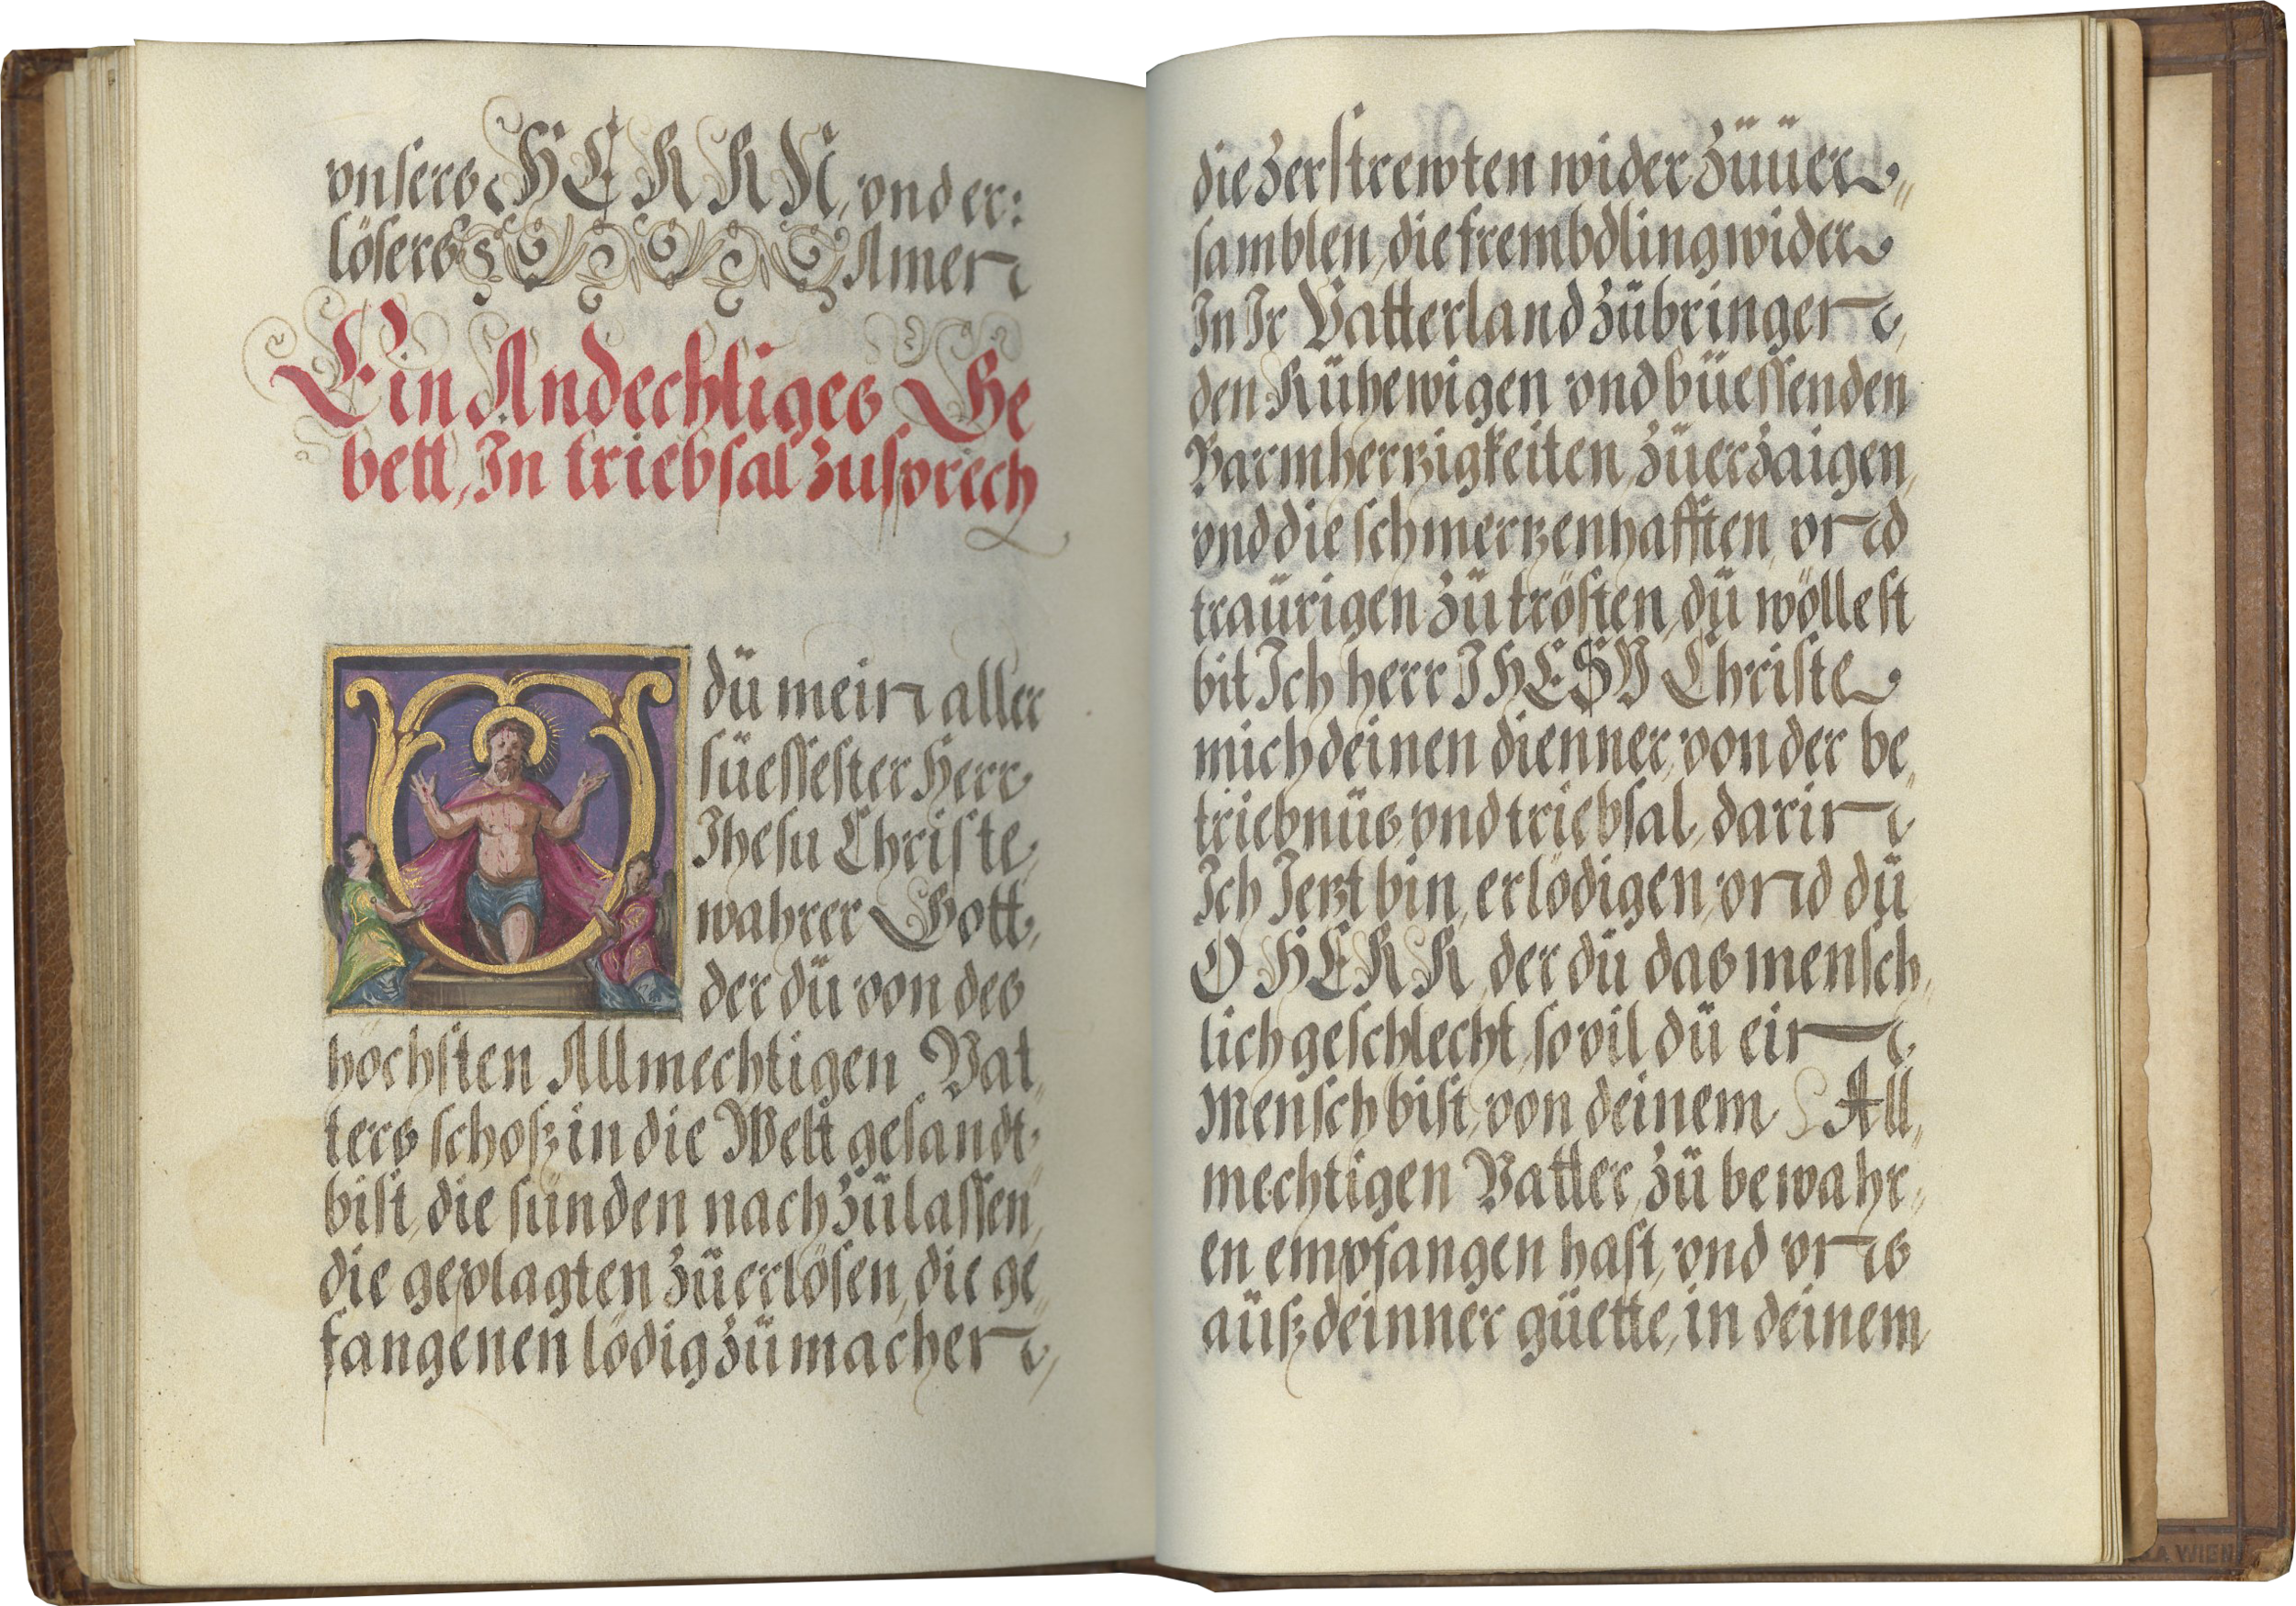 vnsers HERRN, vnd er:
lösers Amen
Ein Andechtiges Ge
bett, In triebsal zusprech
O dü mein aller
süessester Herr
Ihesu Christe,
wahrer Gott,
der dü von des
höchsten Allmechtigen Vat,,
ters schosz in die Welt gesandt
bist, die sünden nach zülassen,
die geplagten züerlösen, die ge,,
fangenen lödig zümachen,
die zerstrewten wider züüer,,
samblen, die frembdling wider
In Ir Vatterland zübringen,
den Rühewigen vnd büessenden
Barmhertzigkeiten züerzaigen,
vnd die schmertzenhafften, vnd
traürigen zü trösten, dü wöllest
bit Ich herr IHESV Christe
mich deinen dienner, von der be,,
triebnüs vnd triebsal, darin
Ich Ietzt bin, erlödigen, vnd dü
O HERR, der dü das mensch,,
lich geschlecht, so vil dü ein
Mensch bist, von deinem All,,
mechtigen Vatter, zü bewahr,,
en empfangen hast, vnd vns
aüsz deinner güette, in deinem
WIEN